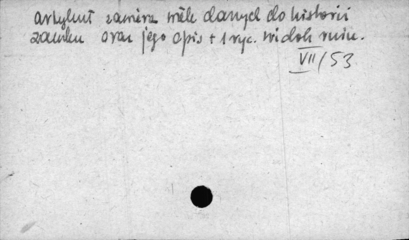 artykuł zawiera wiele danych do historii
zamku oraz jego opis + 1 ryc. widok ruin.
VII/53